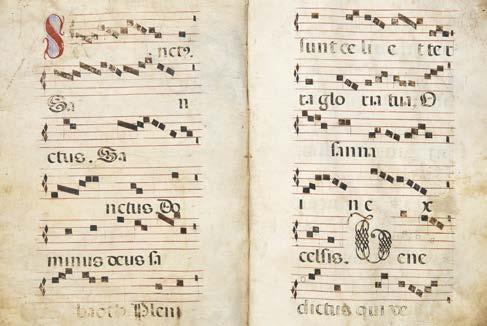 San nctus.
Sa n
ctus. Sa
nctus Do
minus deus sa
baoth. Pleni
sunt ce li e t ter
ra glo ria tua. O
sanna
i n e x
celsis. Bene
dictus qui ve